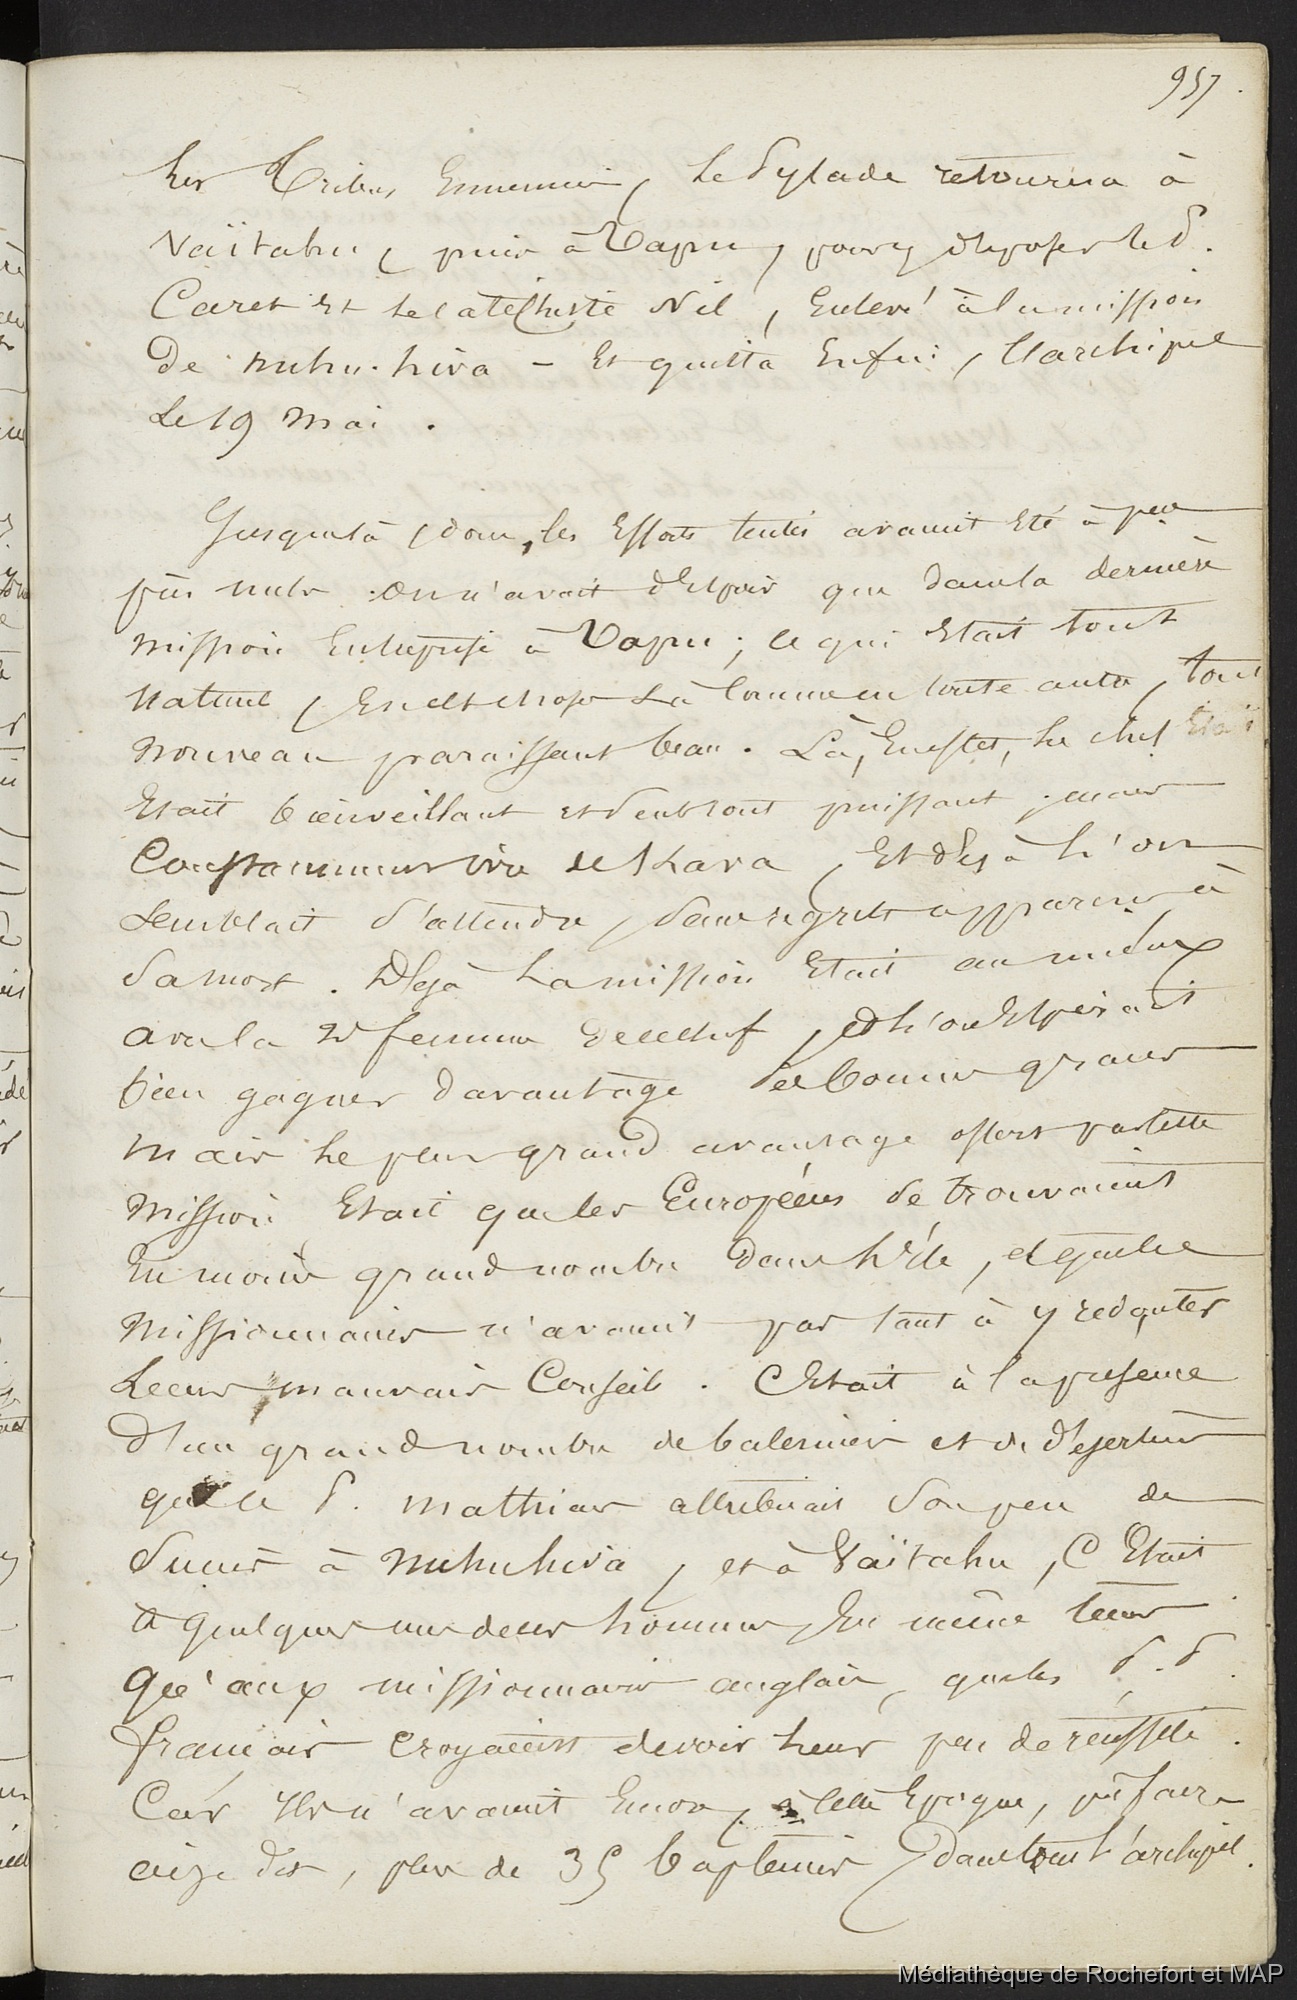 957.
les Tribus Ennemies, le Pylade retourna à
Vaïtahu, puis à Vapu, pour y déposer le P.
Caret et le catéchiste Nil, Enlevé à la mission
de nuhu-hiva - Et quitta Enfin, l'archipel
le 19 Mai.
Jusques là, donc, les Efforts tentés avaient été à peu
près nuls. On n'avait d'Espoir que dans la dernière
mission Entreprise à Vapu; ce qui Etait tout
naturel, En cette chose là comme en toute autre, tout
nouveau paraissant beau. Là, En effet, le chef Etait
Etait bienveillant et surtout puissant, mais
Constamment ivre de Kava, Et déjà l'on
semblait s'attendre, sans regrets apparens à
sa mort. Déjà la mission Etait au mieux
avec la 2e femme de ce chef, et l'on Espérait
bien gagner davantage ses bonnes graces
mais le plus grand avantage offert par cette
mission Etait que les Européens se trouvaient
En moins grand nombre dans l'île, et que les
missionnaires n'avaient pas tant à y redouter
leurs mauvais Conseils. C'Etait à la présence
d'un grand nombre de baleiniers et de déserteurs
que le P. Mathias attribuait son peu de
succès à Nuhuhiva, et à Vaïtahu, C'Etait
à quelques uns de ces hommes, En même tems
qu'aux missionnaires anglais, que les P.P.
français croyaient devoir leur peu de réussite.
Car Ils n'avaient Encore, à cette Epoque, pû faire
ai-je dit, plus de 35 baptêmes, dans tout l'archipel.
Médiathèque de Rochefort et MAP